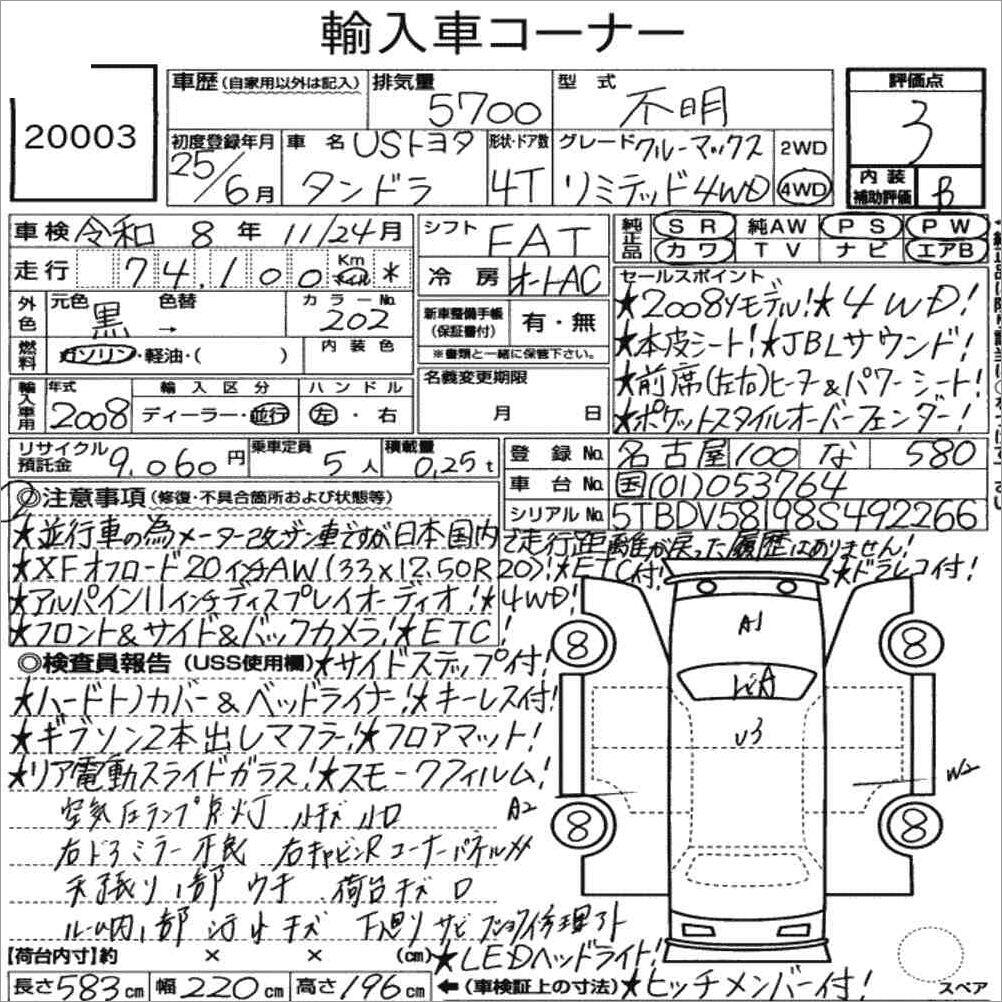 輸入車コーナー
20003
車歴 (自家用以外は記入) 排気量 5700 型式 不明
評価点 3
内装補助評価 B
初度登録年月 25/6月 車名 USトヨタ タンドラ 形状・ドア数 4T グレード クルーマックス リミテッド4WD 2WD 4WD
車検 令和 8年 11/24月
シフト FAT
純正品 SR 純AW PS PW
カワ TV ナビ エアB
走行 74,100 Km マイル *
冷房 オートAC
外色 元色 黒 色替 → カラーNo. 202
新車整備手帳(保証書付) 有・無
※書類と一緒に保管下さい。
燃料 ガソリン・軽油・( ) 内装色
輸入車用 年式 2008 輸入区分 ディーラー・並行 ハンドル 左・右
名義変更期限 月 日
セールスポイント
★2008Yモデル!★4WD!
★本皮シート!★JBLサウンド!
★前席(左右)ヒーター&パワーシート!
★ポケットスタイルオーバーフェンダー!
リサイクル預託金 9,060円 乗車定員 5人 積載量 0,25t
登録No. 名古屋 100 な 580
車台No. 国(01)053764
シリアルNo. 5TBDV58198S492266
◎注意事項 (修復・不具合箇所および状態等)
★並行車の為メーター改ザン車ですが日本国内で走行距離が戻った履歴はありません!
★XFオフロード20インチAW(33x12.50R20)!★ETC付!★ドラレコ付!
★アルパイン11インチディスプレイオーディオ!★4WD!
★フロント&サイド&バックカメラ!★ETC!
◎検査員報告 (USS使用欄) ★サイドステップ付!
★ハードトノカバー&ベッドライナー!★キーレス付!
★ギブソン2本出しマフラー!★フロアマット!
★リア電動スライドガラス!★スモークフィルム!
空気圧ランプ点灯 小キズ 小凹
右ドアミラー不良 右キャビンRコーナーパネルXX
天張り1部ウキ 荷台キズ凹
ル内1部汚れキズ 下廻りサビ
★LEDヘッドライト!
A1
A
U3
A2
W2
8
8
8
8
スペア
[荷台内寸]約 × × (cm)
長さ583cm 幅220cm 高さ196cm
←(車検証上の寸法) ★ヒッチメンバー付!